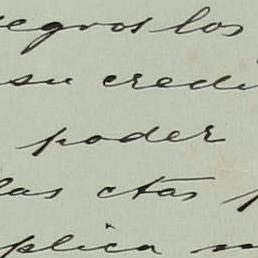 egros los
su credi
poder
las ctas p
plica